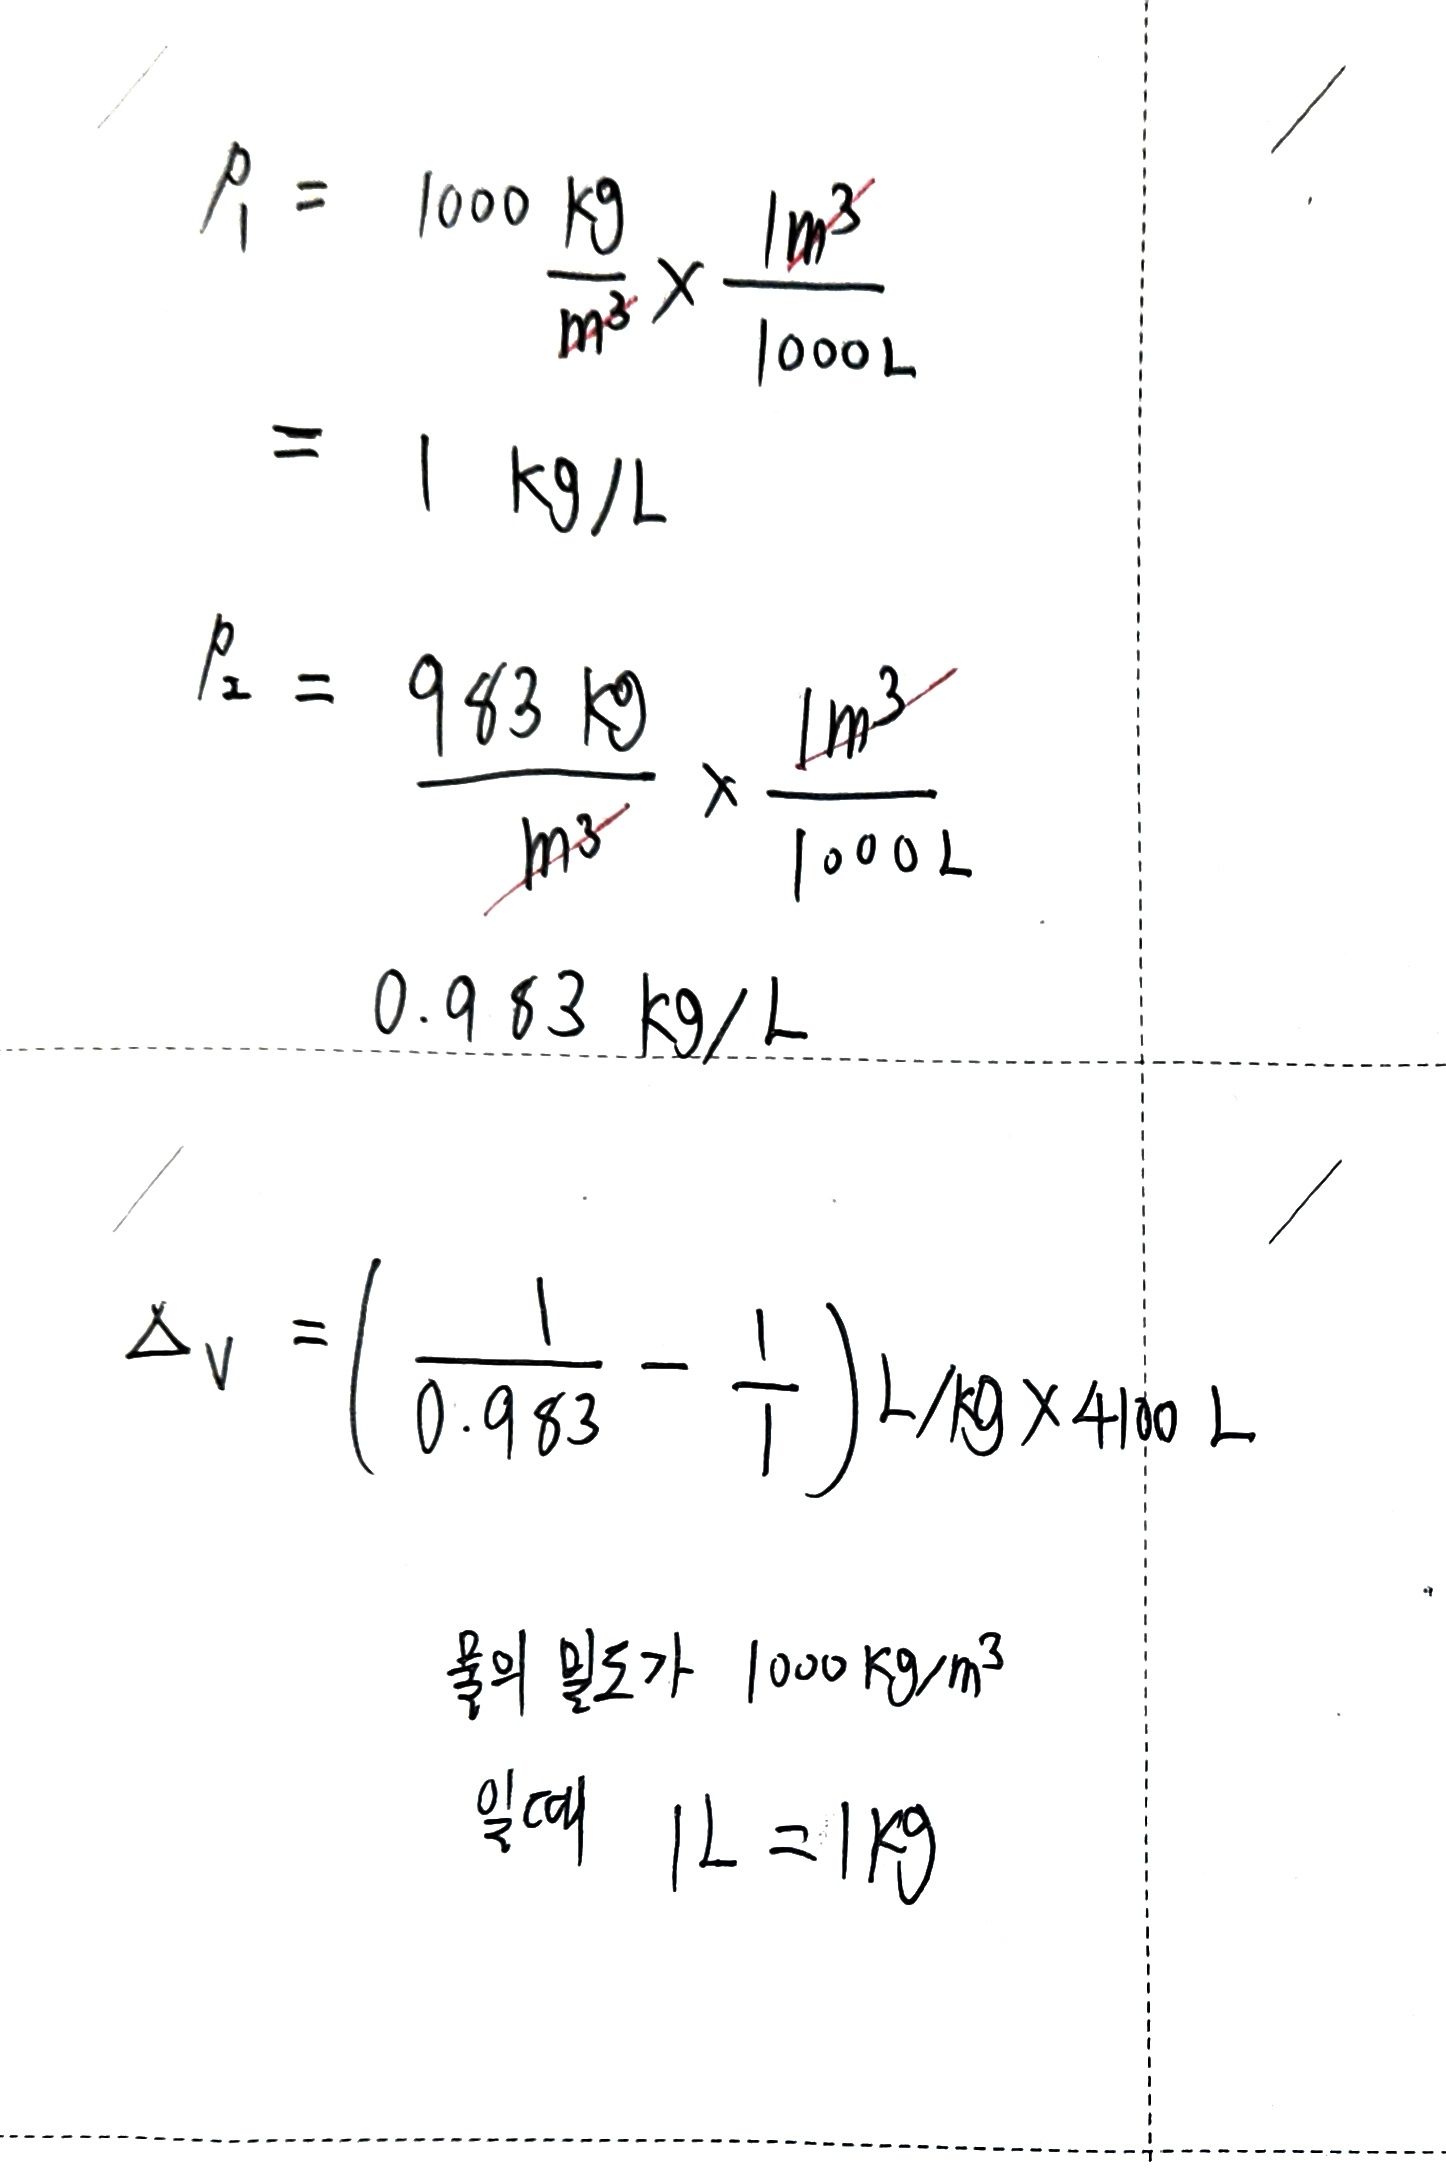 ρ₁ = 1000 kg/m³ × 1m³/1000L
= 1 kg/L
ρ₂ = 983 kg/m³ × 1m³/1000L
0.983 kg/L
Δv = (1/0.983 - 1/1) L/kg × 4100 L
물의 밀도가 1000 kg/m³
일때 1L = 1kg